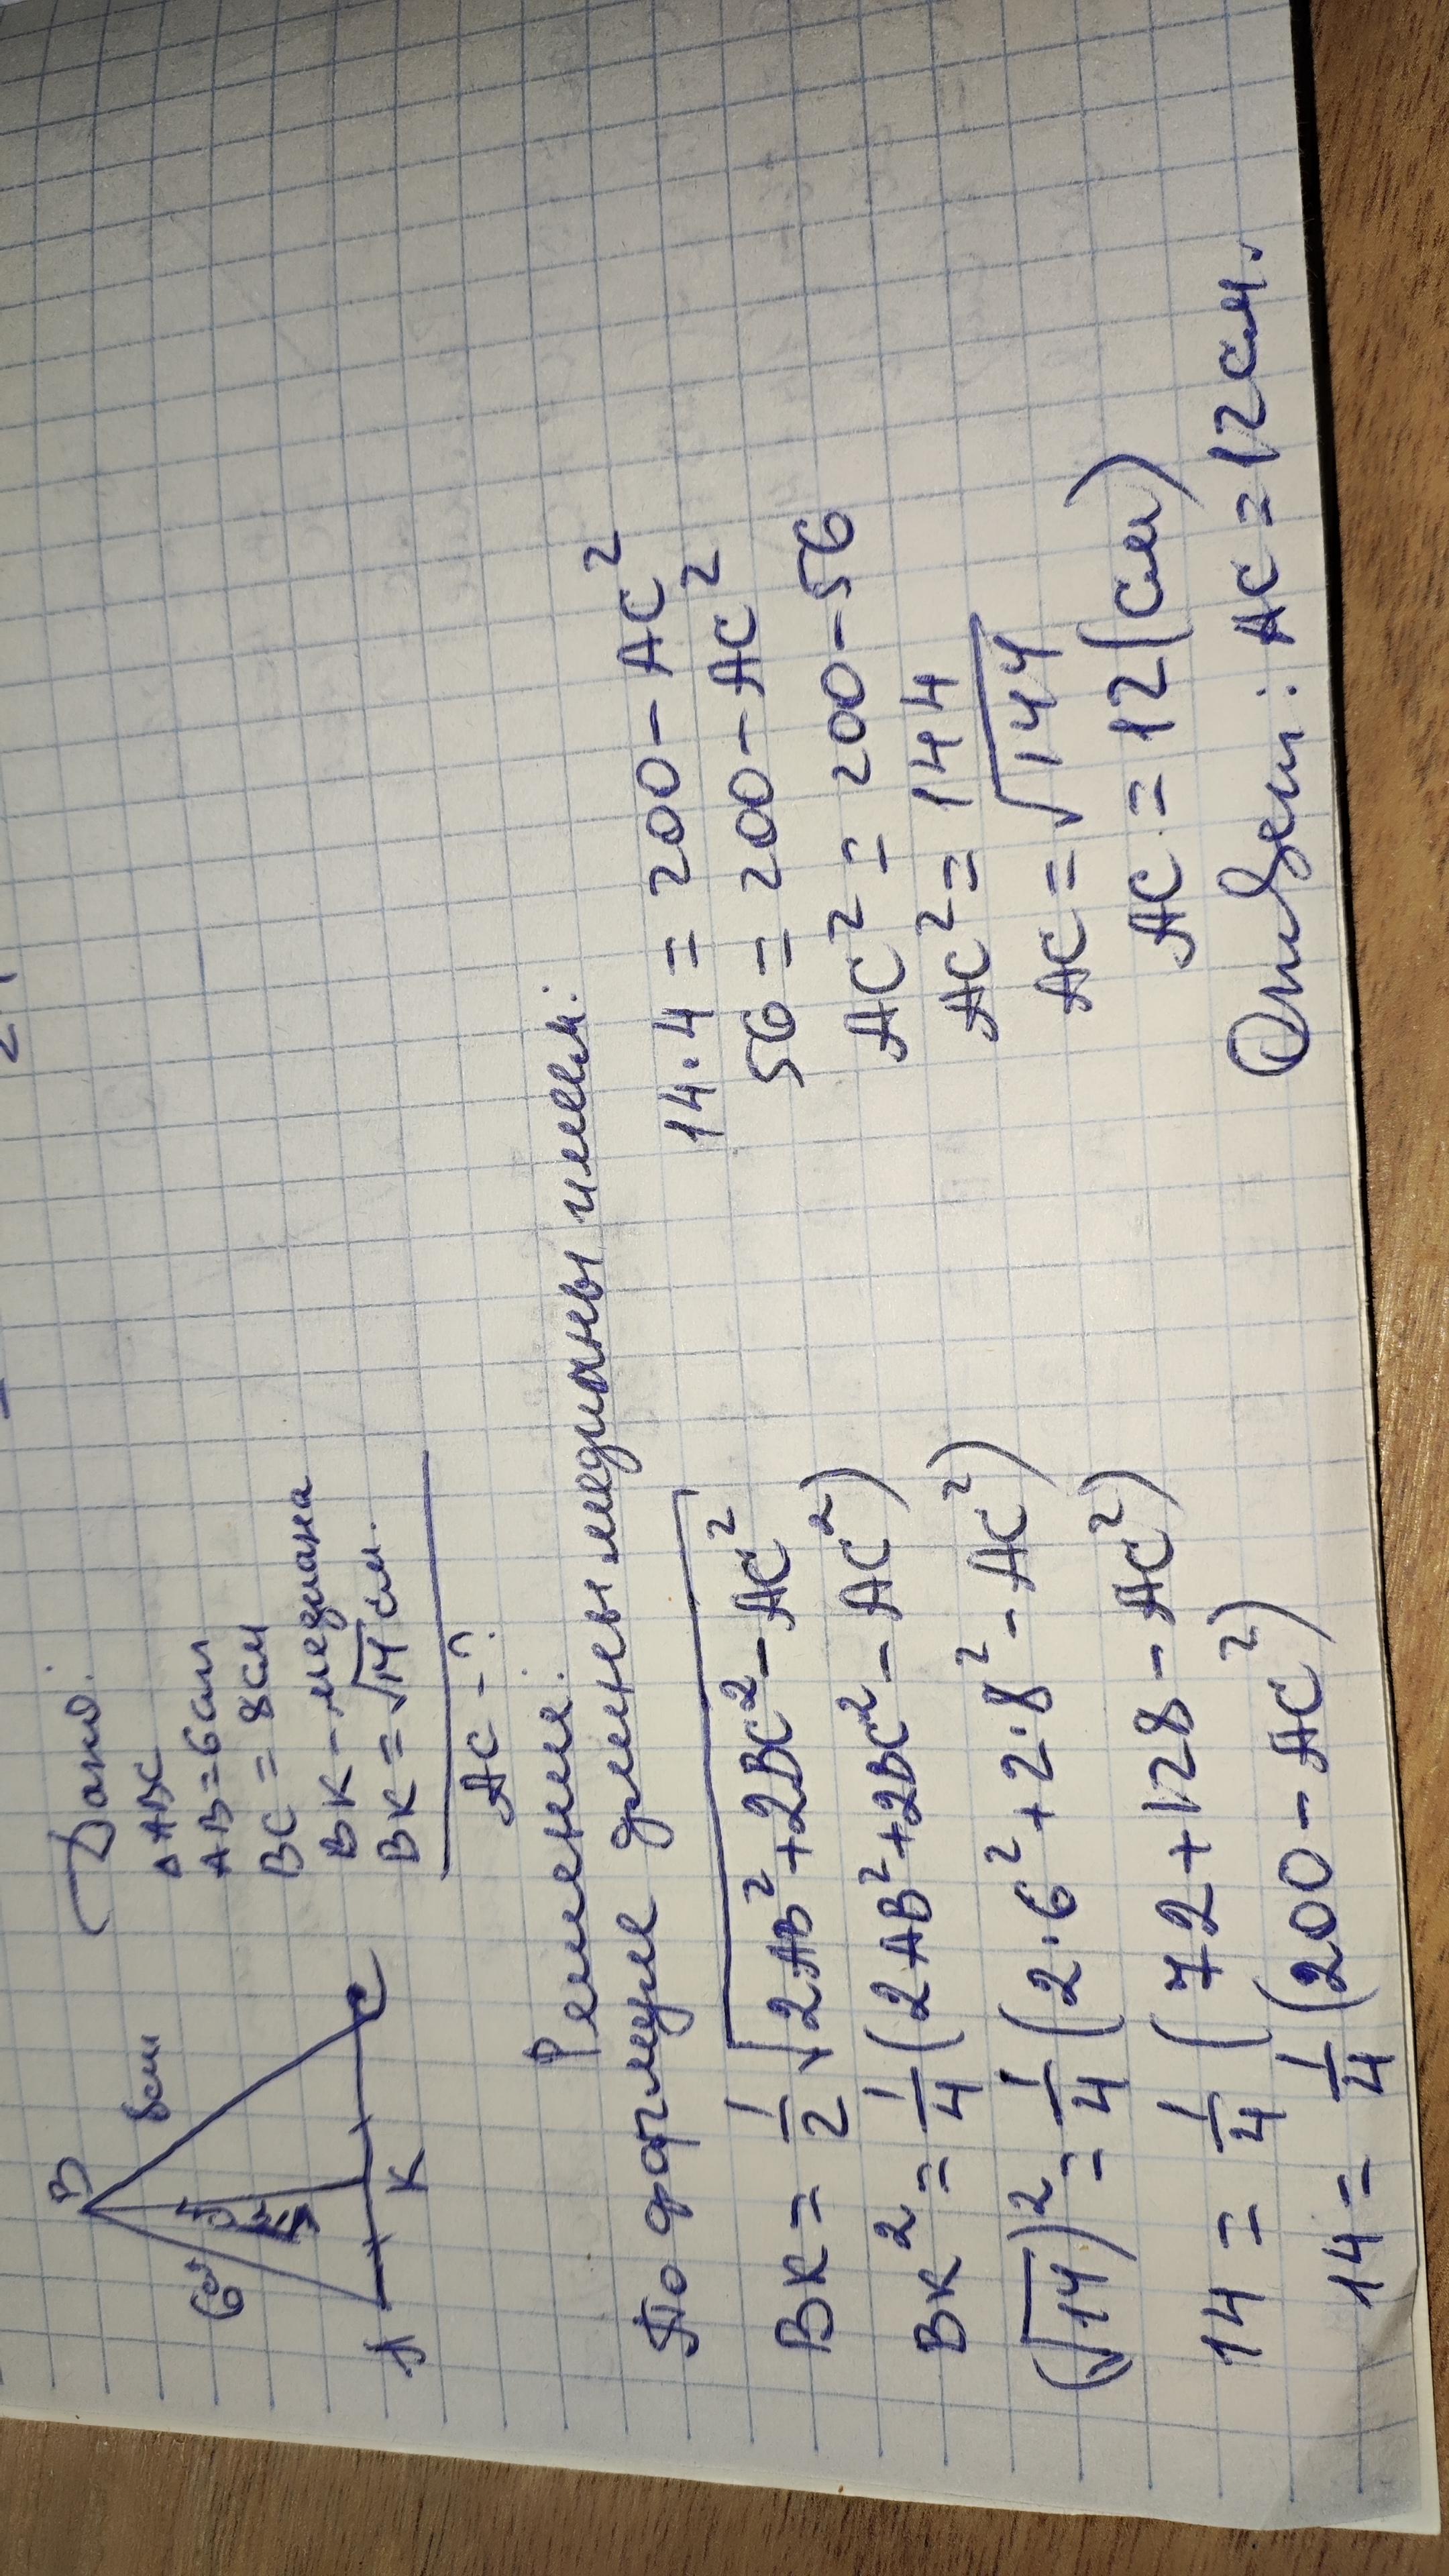 B
6см
8см
A
K
C
Дано:
△ABC
AB=6см
BC=8см
BK-медиана
BK=√14см.
AC-?
Решение:
По формуле длины медианы имеем:
BK=1/2√2AB²+2BC²-AC²
BK²=1/4(2AB²+2BC²-AC²)
(√14)²=1/4(2·6²+2·8²-AC²)
14=1/4(72+128-AC²)
14=1/4(200-AC²)
14·4=200-AC²
56=200-AC²
AC²=200-56
AC²=144
AC=√144
AC=12(см)
Ответ: AC=12см.